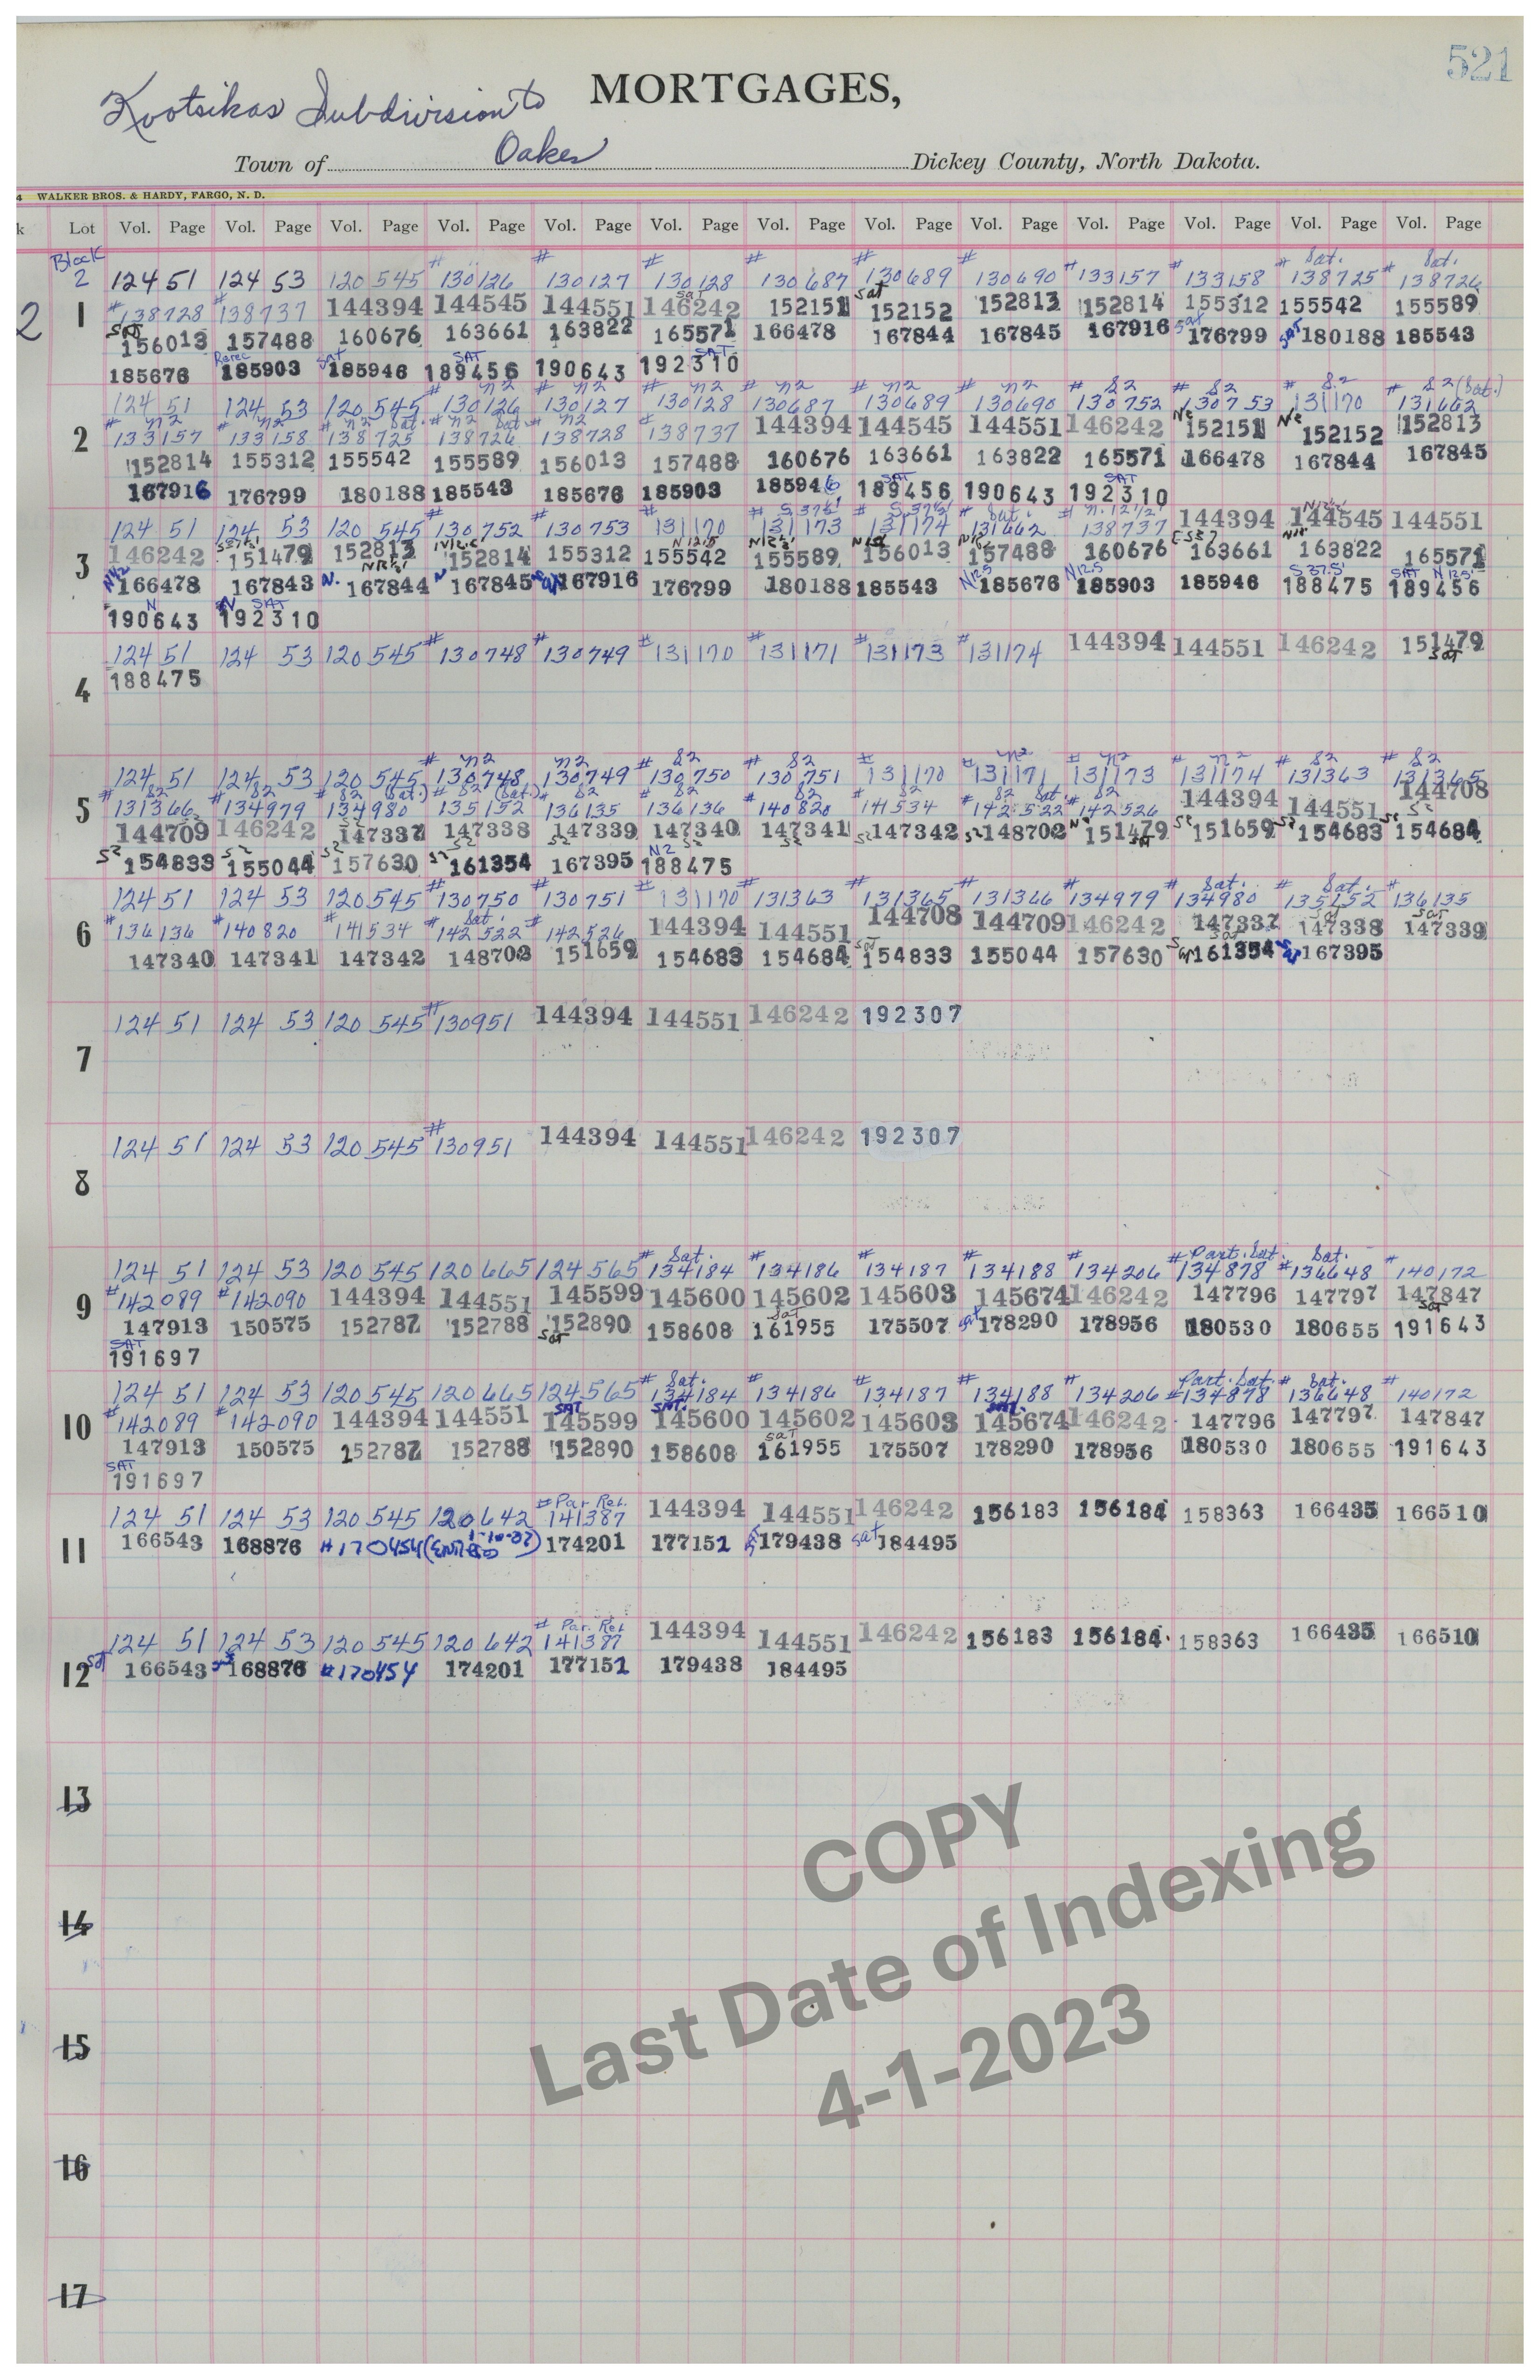 521
Kootsikas Subdivision to MORTGAGES,
Town of Oakes Dickey County, North Dakota.
4 WALKER BROS. & HARDY, FARGO, N. D.
k Lot Vol. Page Vol. Page Vol. Page Vol. Page Vol. Page Vol. Page Vol. Page Vol. Page Vol. Page Vol. Page Vol. Page Vol. Page Vol. Page
Block # # # # # # # # # Sat. # Sat.
2 124 51 124 53 120 545 130126 130127 130128 130687 130689 130690 133157 133158 138725 138726
2 1 #138728 #138737 144394 144545 144551 sat 146242 152151 sat 152152 152813 152814 155312 155542 155589
sat 156013 157488 160676 163661 163822 165571 166478 167844 167845 167916 sat 176799 sat 180188 185543
185676 Rerec 185903 sat 185946 SAT 189456 190643 SAT 192310
# n2 # n2 # n2 # n2 # n2 # n2 # S2 # S2 # S2 # S2 (Sat.)
124 51 124 53 120 545 130126 130127 130128 130687 130689 130690 130752 130753 131170 131662
2 # n2 133157 # n2 133158 # n2 Sat. 138725 # n2 Sat. 138726 # n2 138728 # 138737 144394 144545 144551 146242 N2 152151 N2 152152 152813
152814 155312 155542 155589 156013 157488 160676 163661 163822 165571 166478 167844 167845
167916 176799 180188 185543 185676 185903 185946 SAT 189456 190643 SAT 192310
124 51 124 53 120 545 #130752 #130753 #131170 # S.37½' 131173 # S.37½' 131174 # Sat. 131662 # n.12½' 138737 144394 N12½ 144545 144551
3 146242 151479 152813 152814 155312 N12.5 155542 N12½' 155589 156013 157488 160676 163661 163822 165571
N12 166478 167843 N. 167844 N 167845 167916 176799 180188 185543 N12.5 185676 N12.5 185903 185946 S 37.5' 188475 SAT N 12.5' 189456
N 190643 N SAT 192310
124 51 124 53 120 545 #130748 #130749 #131170 #131171 #131173 #131174 144394 144551 146242 151479 sat
4 188475
# n2 n2 # S2 # S2 # # n2 # n2 # n2 # S2 # S2
124 51 124 53 120 545 130748 130749 130750 130751 131170 131171 131173 131174 131363 131365
5 # S2 131366 # S2 134979 # S2 (Sat.) 134980 # S2 (Sat.) 135152 # S2 136135 # S2 136136 # S2 140820 # S2 141534 # S2 Sat. 142522 # S2 142526 144394 144551 144708
144709 146242 S2 147337 147338 147339 147340 147341 S2 147342 S2 148702 N2 151479 sat S2 151659 S2 154683 S2 154684
S2 154833 S2 155044 S2 157630 S2 161354 S2 167395 N2 188475
124 51 124 53 120 545 #130750 #130751 #131170 #131363 #131365 #131366 #134979 # Sat. 134980 # Sat. 135152 #136135
6 #136136 #140820 #141534 # Sat. 142522 #142526 144394 144551 144708 144709 146242 147337 sat 147338 sat 147339
147340 147341 147342 148702 151659 154683 154684 sat 154833 155044 157630 sat 161354 167395
124 51 124 53 120 545 #130951 144394 144551 146242 192307
7
124 51 124 53 120 545 #130951 144394 144551 146242 192307
8
# Sat. # # # # # Part. Sat. # Sat. #
124 51 124 53 120 545 120 665 124 565 134184 134186 134187 134188 134206 134878 136648 140172
9 #142089 #142090 144394 144551 145599 145600 145602 145603 145674 146242 147796 147797 147847
147913 150575 152787 152788 sat 152890 158608 sat 161955 175507 sat 178290 178956 180530 180655 sat 191643
SAT 191697
# Sat. # # # # Part. Sat. # Sat. #
124 51 124 53 120 545 120 665 124 565 134184 134186 134187 134188 134206 #134878 136648 140172
10 #142089 #142090 144394 144551 SAT 145599 SAT. 145600 145602 145603 145674 146242 147796 147797 147847
147913 150575 152787 152788 152890 158608 sat 161955 175507 178290 178956 180530 180655 191643
SAT 191697
124 51 124 53 120 545 120 642 # Par. Rel. 141387 144394 144551 146242 156183 156184 158363 166435 166510
11 166543 168876 #170454 (ENTERED 1-10-07) 174201 177152 179438 sat 184495
124 51 124 53 120 545 120 642 # Par. Rel. 141387 144394 144551 146242 156183 156184 158363 166435 166510
12 sat 166543 168876 #170454 174201 177152 179438 184495
13
14
15
16
17
COPY
Last Date of Indexing
4-1-2023